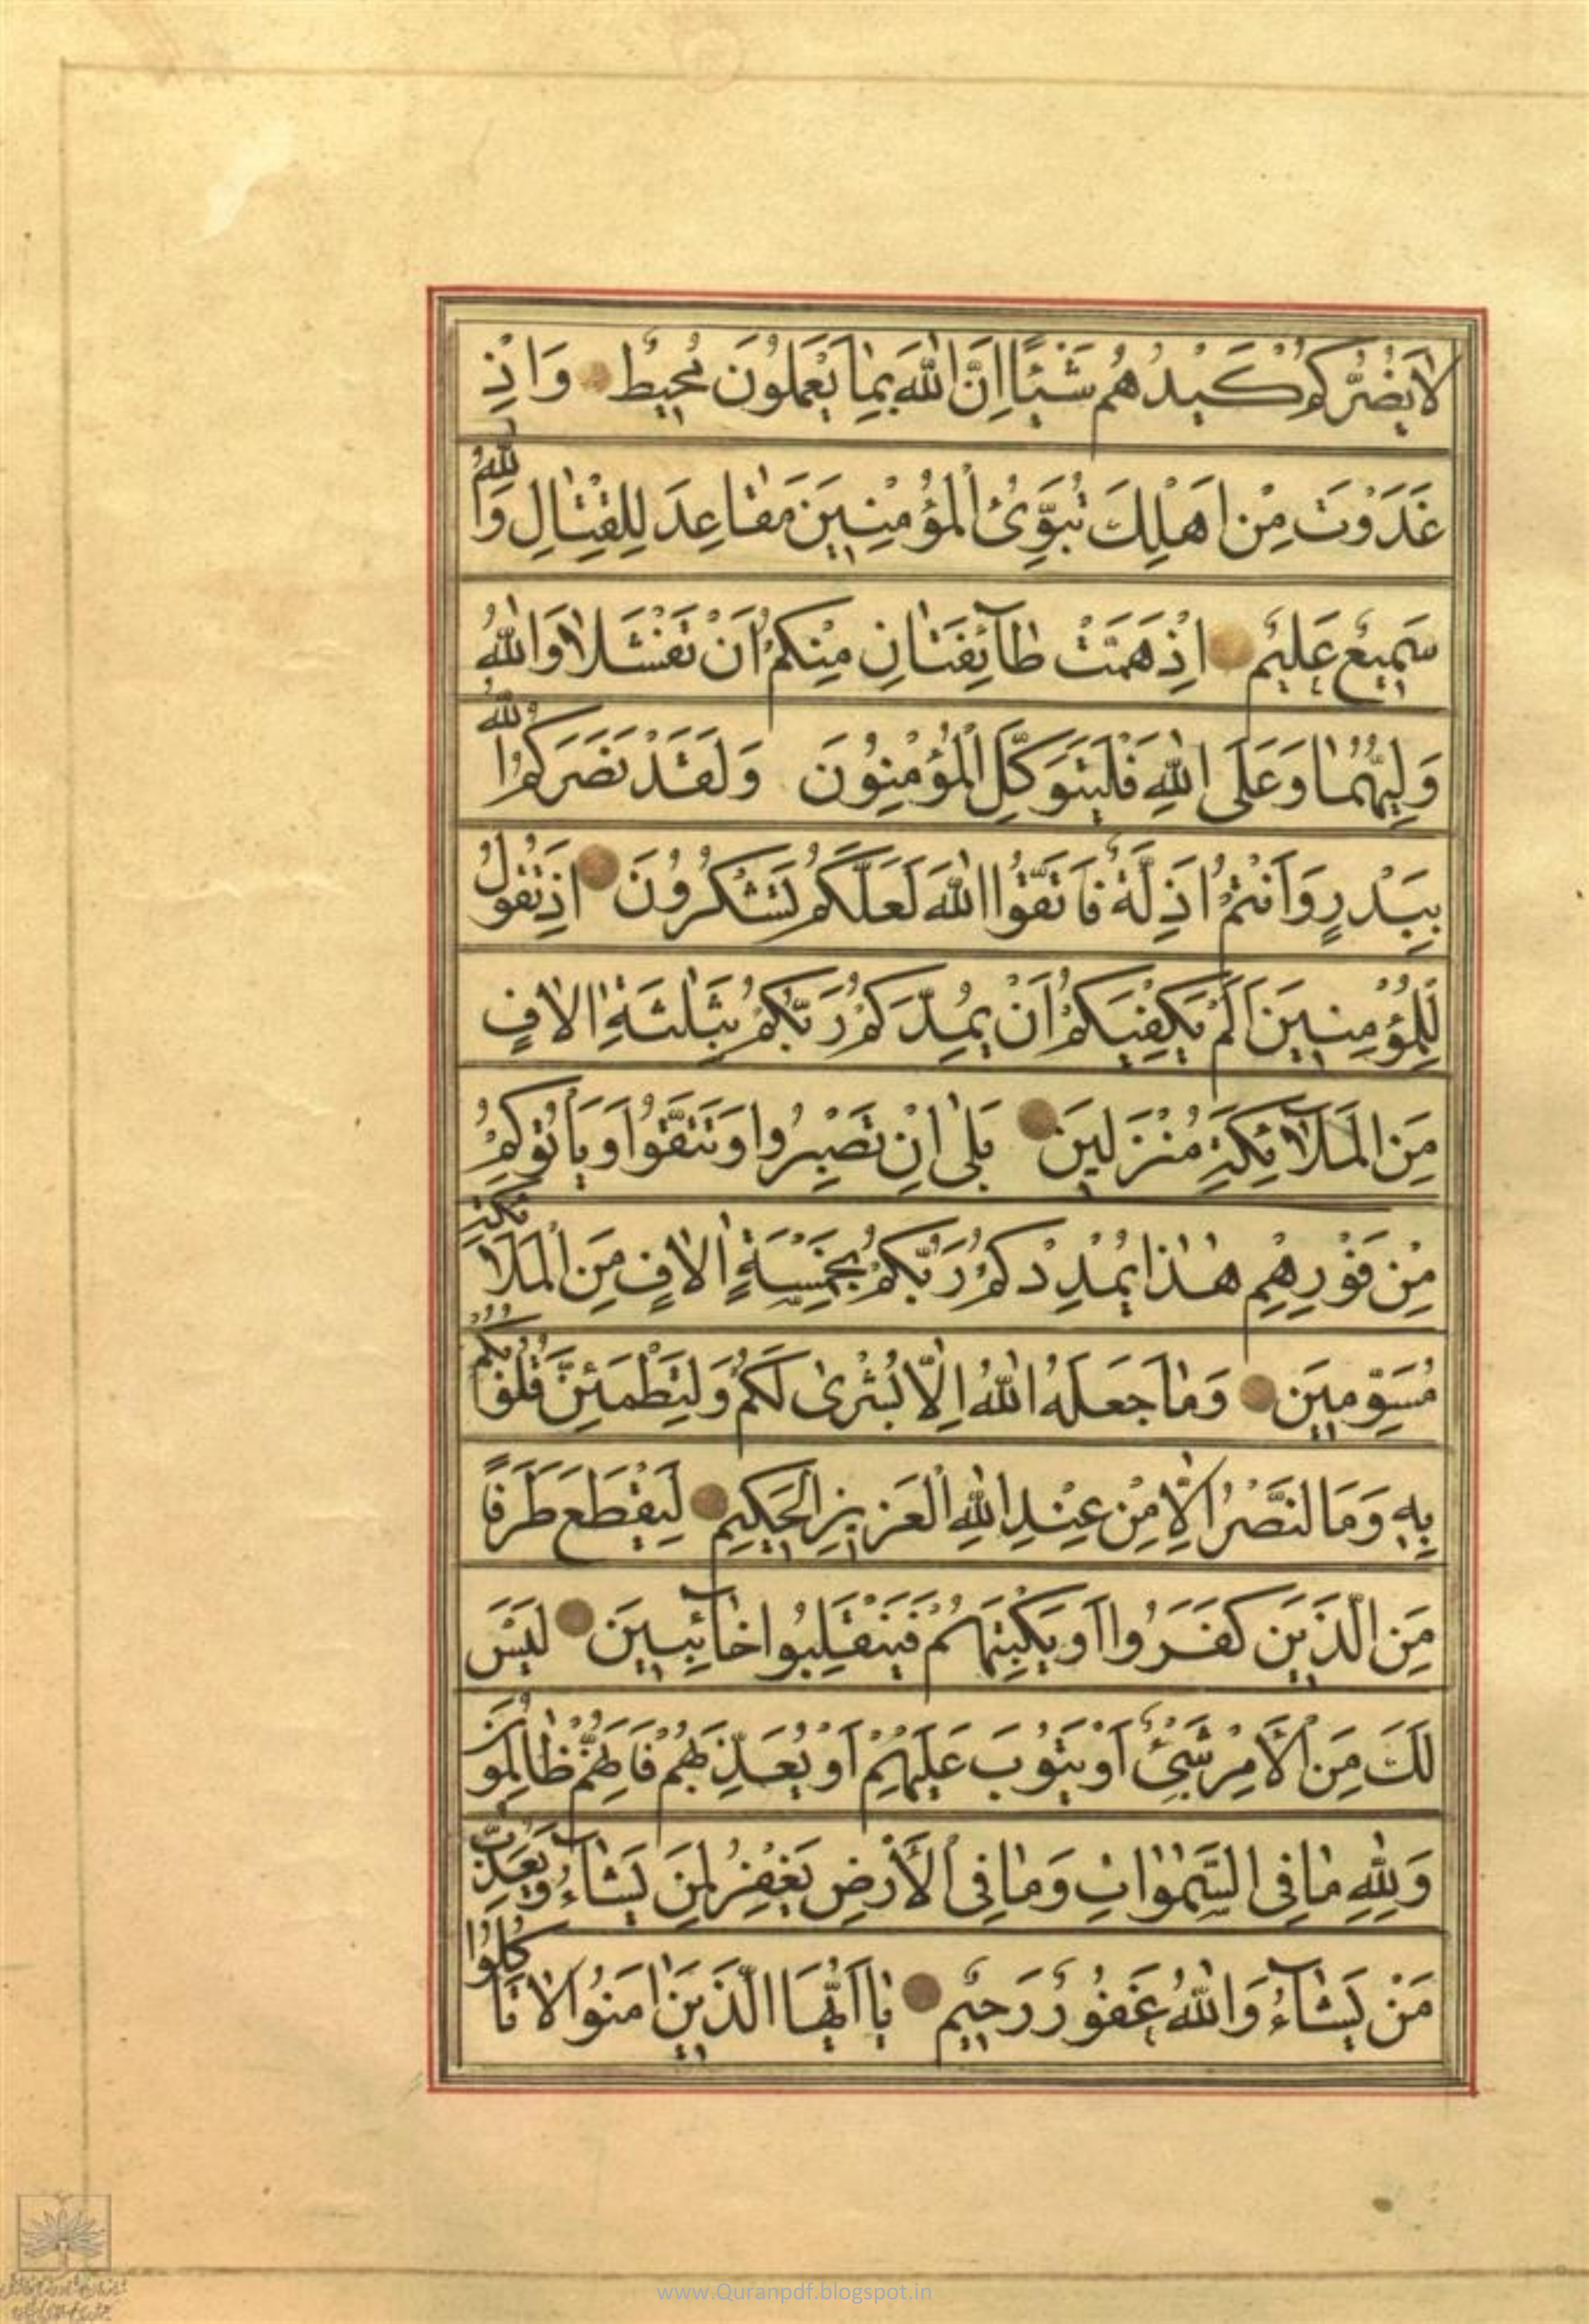 لَا يَضُرُّكُمْ كَيْدُهُمْ شَيْئًا اِنَّ اللهَ بِمَا يَعْمَلُونَ مُحِيطٌ وَاِذْ
غَدَوْتَ مِنْ اَهْلِكَ تُبَوِّئُ الْمُؤْمِنِينَ مَقَاعِدَ لِلْقِتَالِ وَاللهُ
سَمِيعٌ عَلِيمٌ اِذْ هَمَّتْ طَآئِفَتَانِ مِنْكُمْ اَنْ تَفْشَلَا وَاللهُ
وَلِيُّهُمَا وَعَلَى اللهِ فَلْيَتَوَكَّلِ الْمُؤْمِنُونَ وَلَقَدْ نَصَرَكُمُ اللهُ
بِبَدْرٍ وَاَنْتُمْ اَذِلَّةٌ فَاتَّقُوا اللهَ لَعَلَّكُمْ تَشْكُرُونَ اِذْ تَقُولُ
لِلْمُؤْمِنِينَ اَلَمْ يَكْفِيَكُمْ اَنْ يُمِدَّكُمْ رَبُّكُمْ بِثَلٰثَةِ اٰلَافٍ
مِنَ الْمَلَآئِكَةِ مُنْزَلِينَ بَلٰى اِنْ تَصْبِرُوا وَتَتَّقُوا وَيَأْتُوكُمْ
مِنْ فَوْرِهِمْ هٰذَا يُمْدِدْكُمْ رَبُّكُمْ بِخَمْسَةِ اٰلَافٍ مِنَ الْمَلَائِكَةِ
مُسَوِّمِينَ وَمَا جَعَلَهُ اللهُ اِلَّا بُشْرٰى لَكُمْ وَلِتَطْمَئِنَّ قُلُوبُكُمْ
بِهِ وَمَا لنَّصْرُ اِلَّا مِنْ عِنْدِ اللهِ الْعَزِيزِ الْحَكِيمِ لِيَقْطَعَ طَرَفًا
مِنَ الَّذِينَ كَفَرُوا اَوْ يَكْبِتَهُمْ فَيَنْقَلِبُوا خَآئِبِينَ لَيْسَ
لَكَ مِنَ الْأَمْرِ شَيْءٌ اَوْ يَتُوبَ عَلَيْهِمْ اَوْ يُعَذِّبَهُمْ فَاِنَّهُمْ ظَالِمُونَ
وَلِلّٰهِ مَا فِى السَّمٰوَاتِ وَمَا فِى الْأَرْضِ يَغْفِرُ لِمَنْ يَشَآءُ وَيُعَذِّبُ
مَنْ يَشَآءُ وَاللهُ غَفُورٌ رَحِيمٌ يَا اَيُّهَا الَّذِينَ اٰمَنُوا لَا تَاكُلُوا
www.Quranpdf.blogspot.in